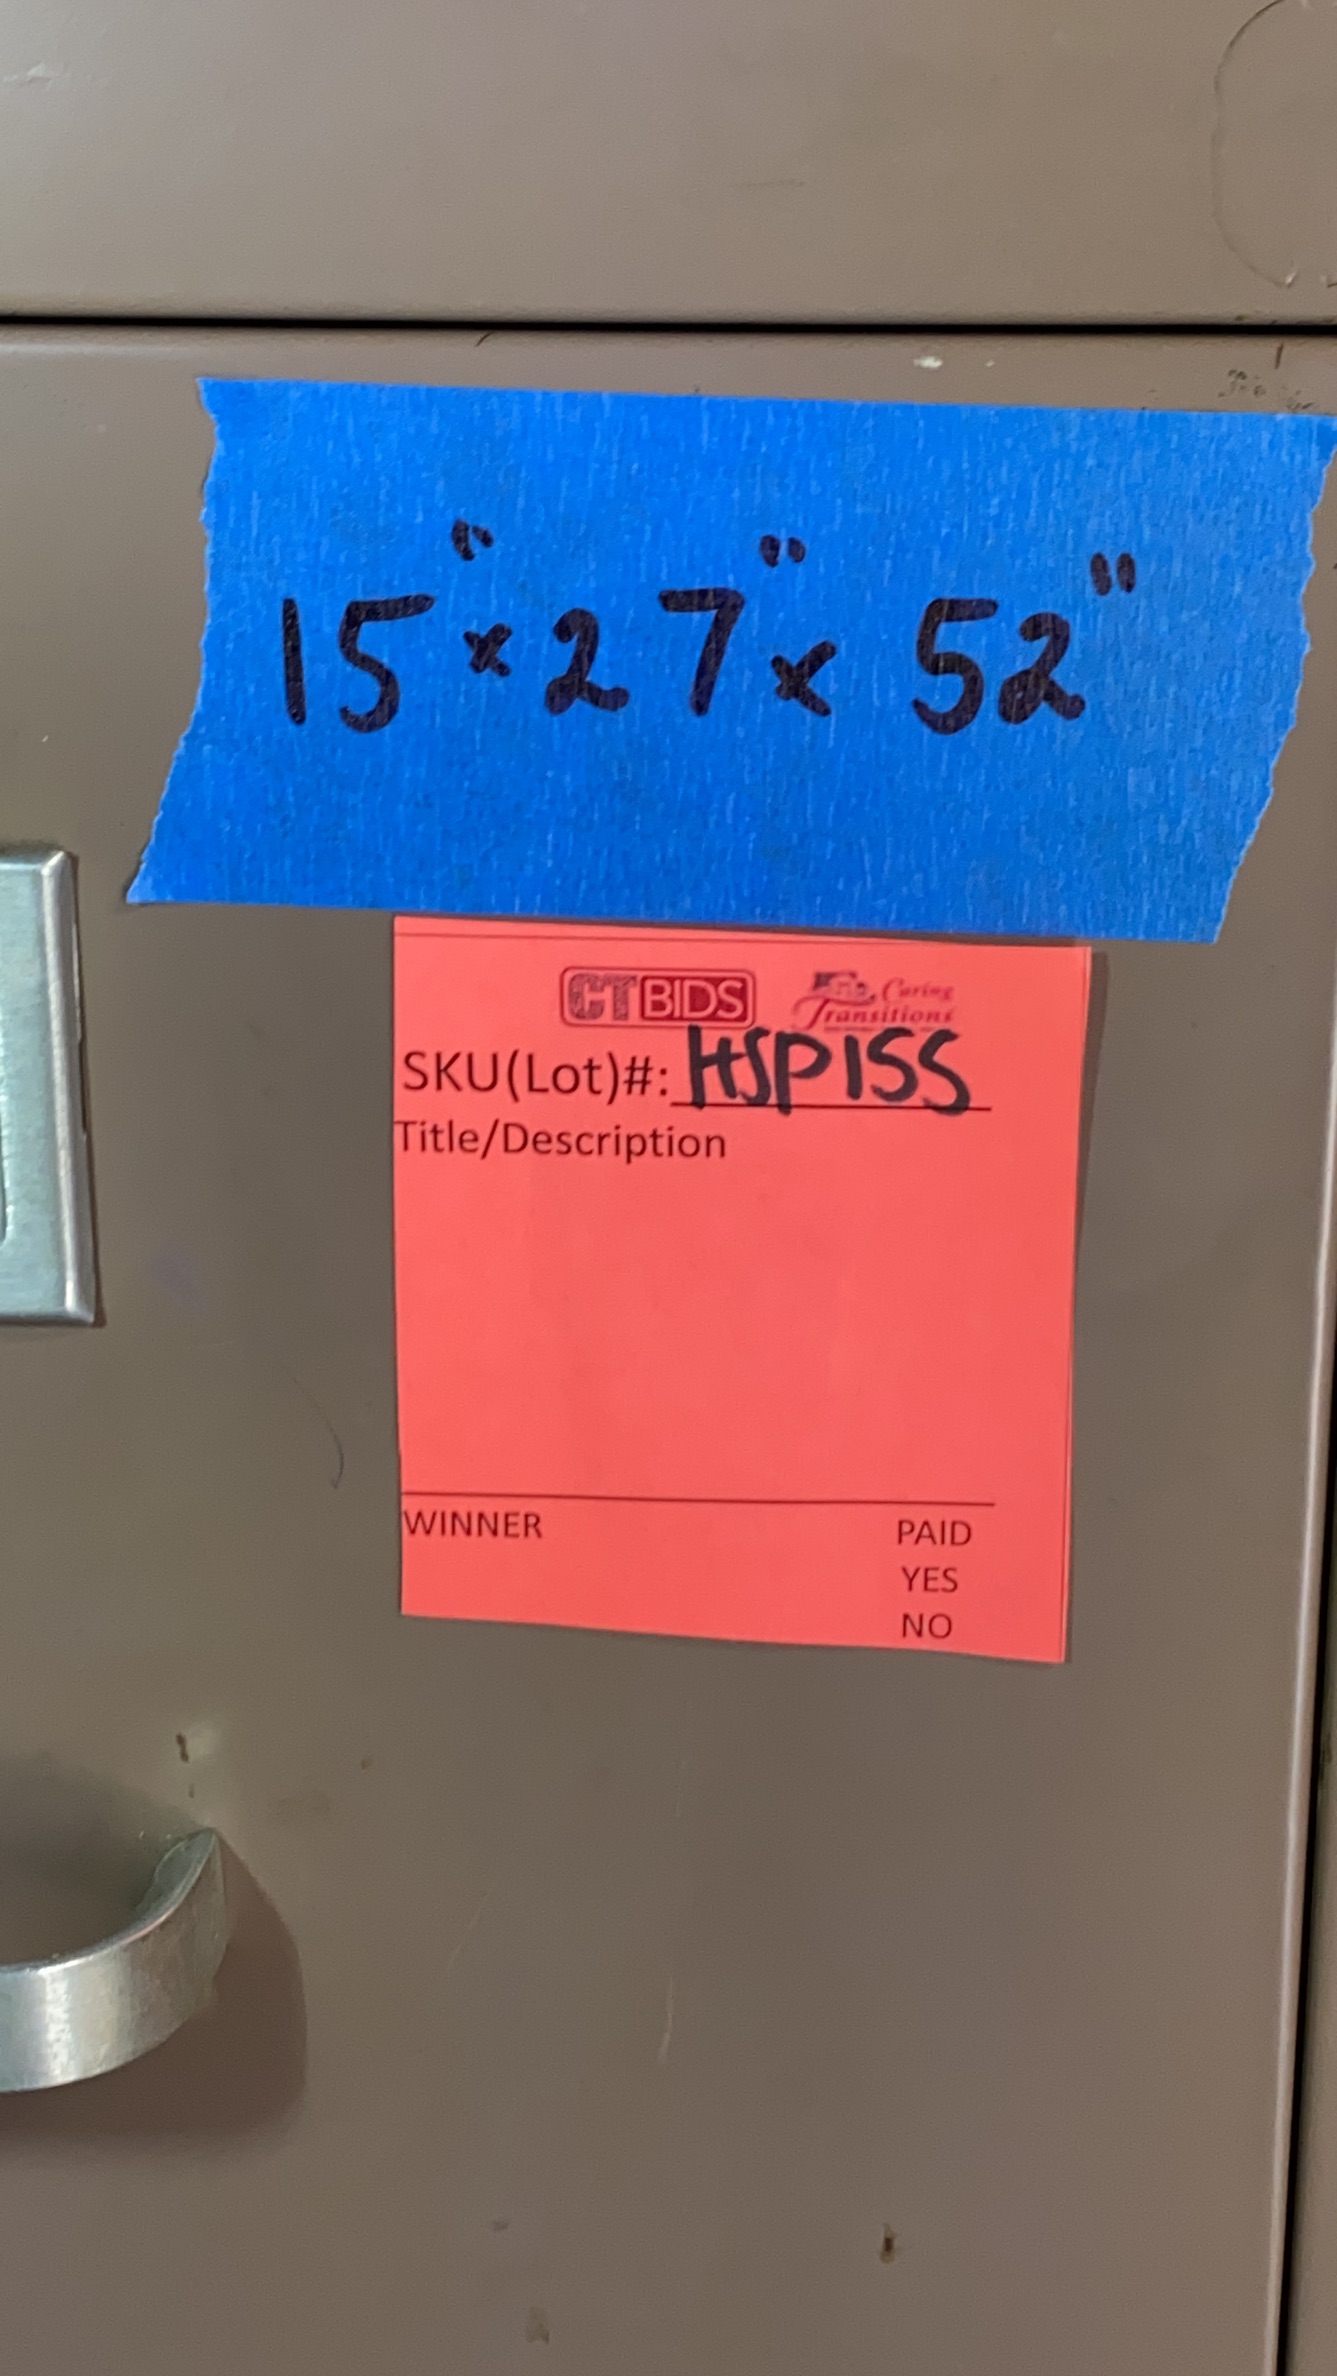 15" x 27" x 52"
CTBIDS Caring Transitions
SKU(Lot)#: HSP155
Title/Description
WINNER PAID
YES
NO